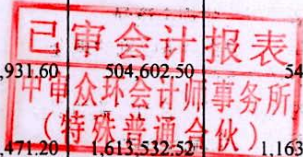 已审会计报表
,931.60 504,602.50 54
中审众环会计师事务所
(特殊普通合伙)
,471.20 1,613,532.52 1,163